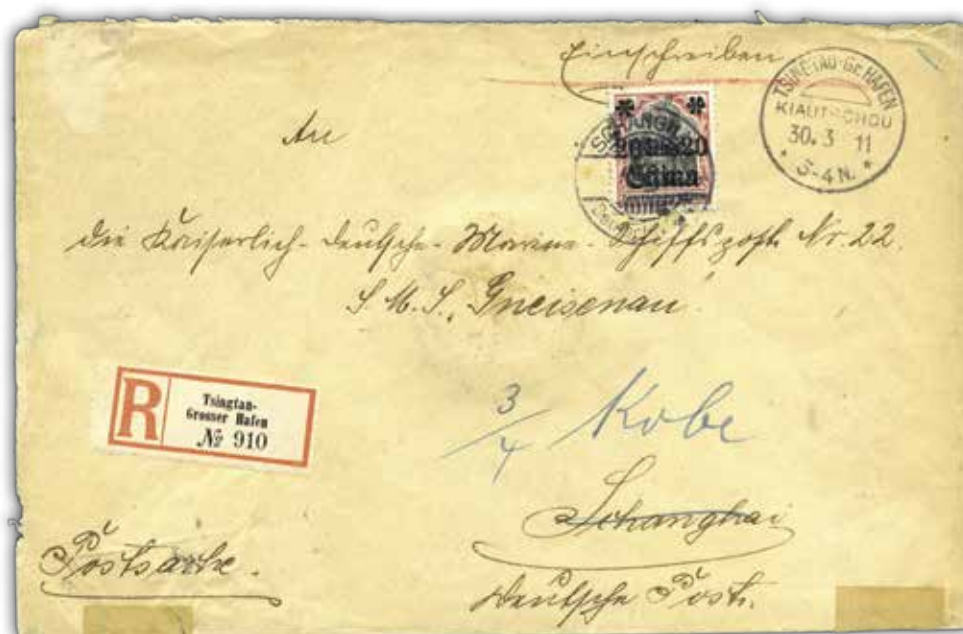 Einschreiben
TSINGTAU-Gr. HAFEN
KIAUTSCHOU
30. 3 11
* 3-4N. *
SCHANGH
China
An
die Kaiserlich-deutsche-Marine-Schiffspost Nr. 22.
S. M. S. "Gneisenau"
R
Tsingtau-
Grosser Hafen
№ 910
3/4 Kobe
Schanghai
Postsache.
Deutsche Post.